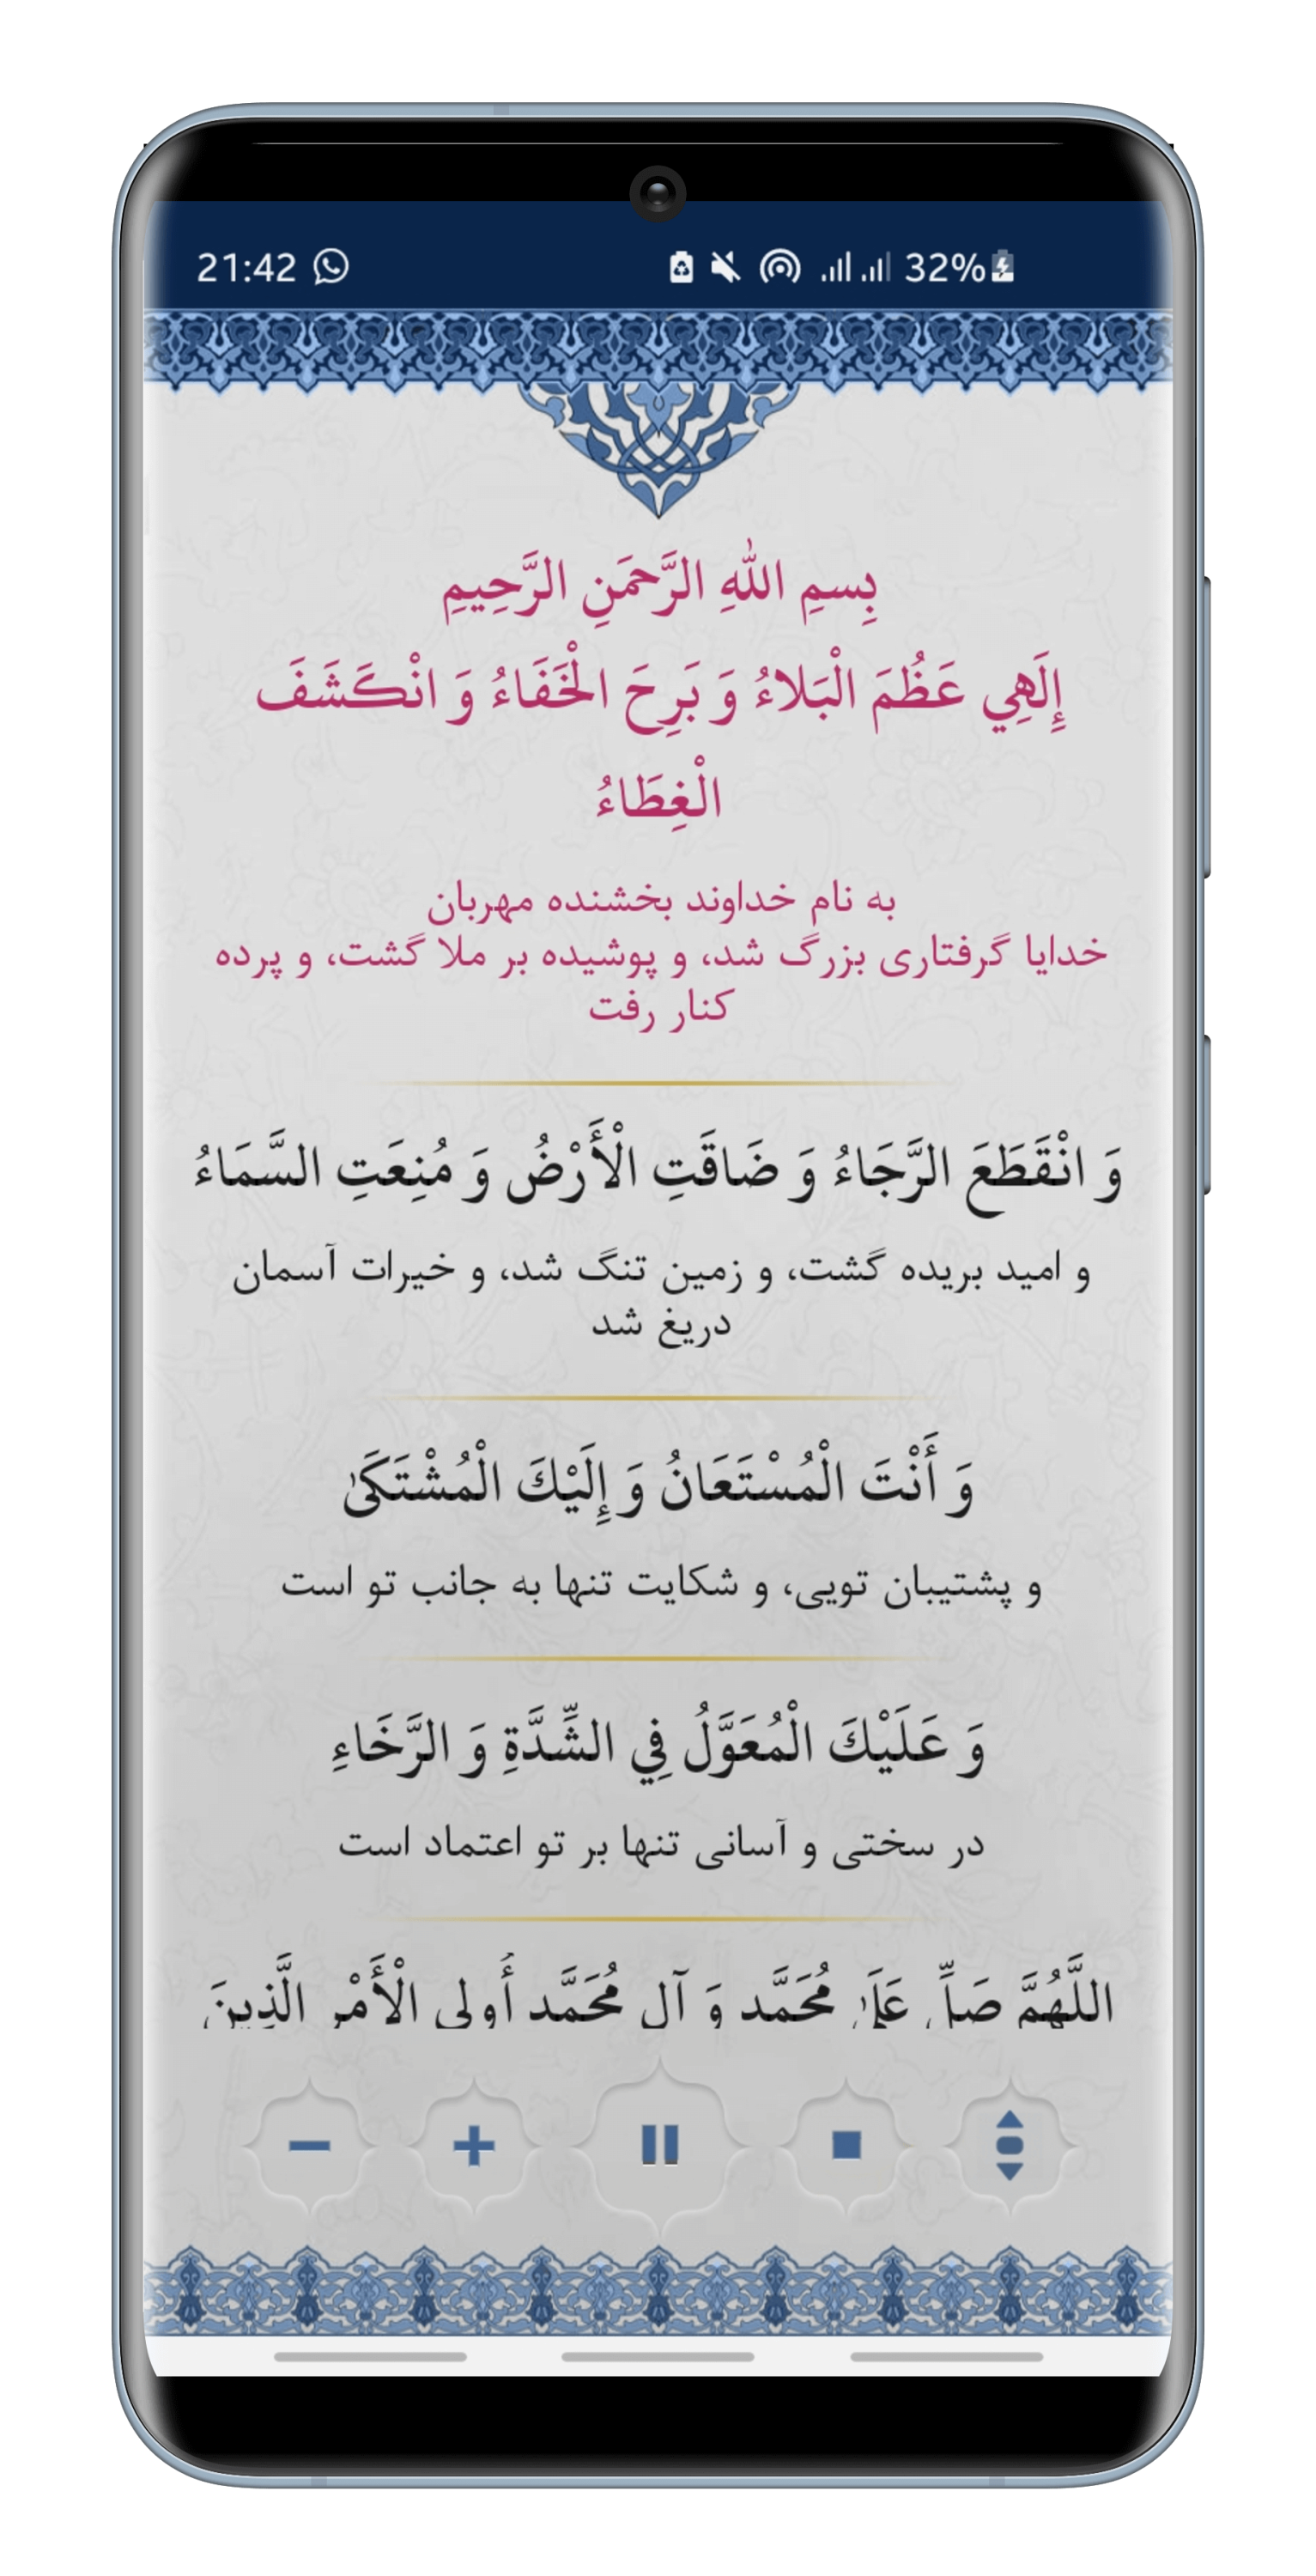 21:42
32%
بِسمِ اللهِ الرَّحمَنِ الرَّحِيمِ
إِلَهِي عَظُمَ الْبَلاءُ وَ بَرِحَ الْخَفَاءُ وَ انْكَشَفَ
الْغِطَاءُ
به نام خداوند بخشنده مهربان
خدایا گرفتاری بزرگ شد، و پوشیده بر ملا گشت، و پرده
کنار رفت
وَ انْقَطَعَ الرَّجَاءُ وَ ضَاقَتِ الْأَرْضُ وَ مُنِعَتِ السَّمَاءُ
و امید بریده گشت، و زمین تنگ شد، و خیرات آسمان
دریغ شد
وَ أَنْتَ الْمُسْتَعَانُ وَ إِلَيْكَ الْمُشْتَكَىٰ
و پشتیبان تویی، و شکایت تنها به جانب تو است
وَ عَلَيْكَ الْمُعَوَّلُ فِي الشِّدَّةِ وَ الرَّخَاءِ
در سختی و آسانی تنها بر تو اعتماد است
اللَّهُمَّ صَلِّ عَلَىٰ مُحَمَّد وَ آلِ مُحَمَّد أُولِي الْأَمْرِ الَّذِينَ